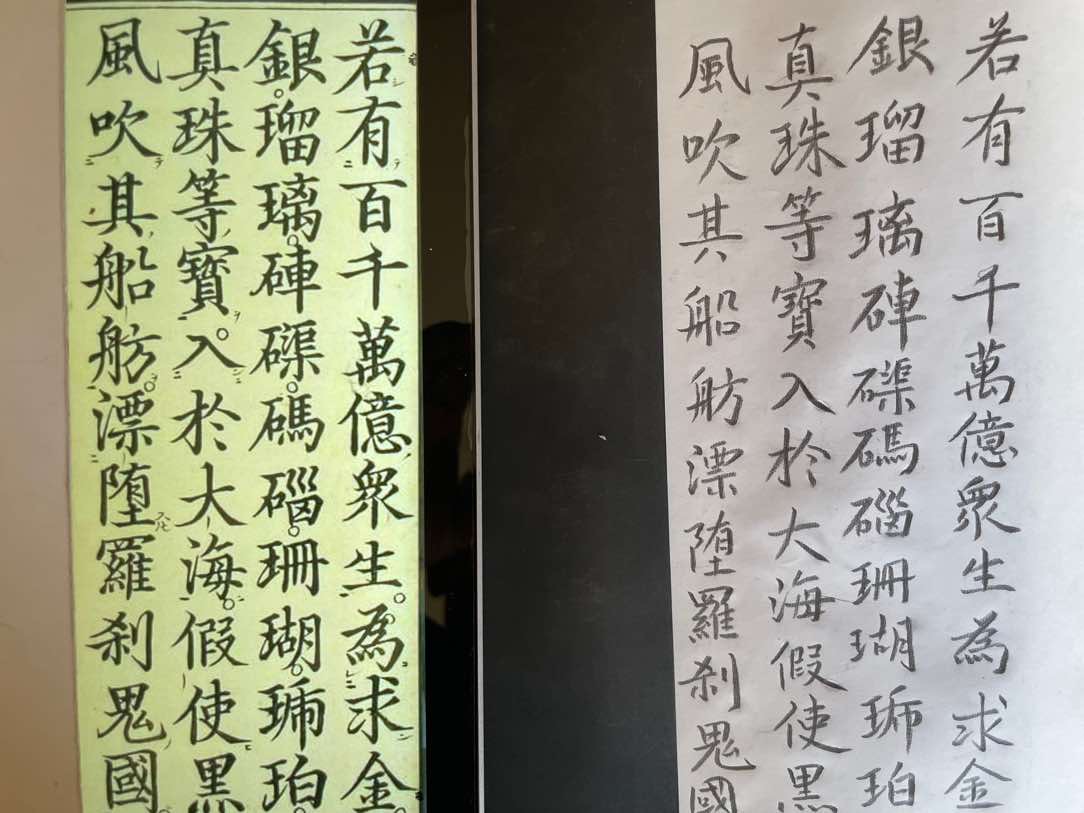 若有百千萬億衆生為求金
銀瑠璃硨磲碼碯珊瑚琥珀
真珠等寶入於大海假使黒
風吹其船舫漂堕羅刹鬼國
若有百千萬億衆生為求金
銀瑠璃硨磲碼碯珊瑚琥珀
真珠等寶入於大海假使黒
風吹其船舫漂堕羅刹鬼國